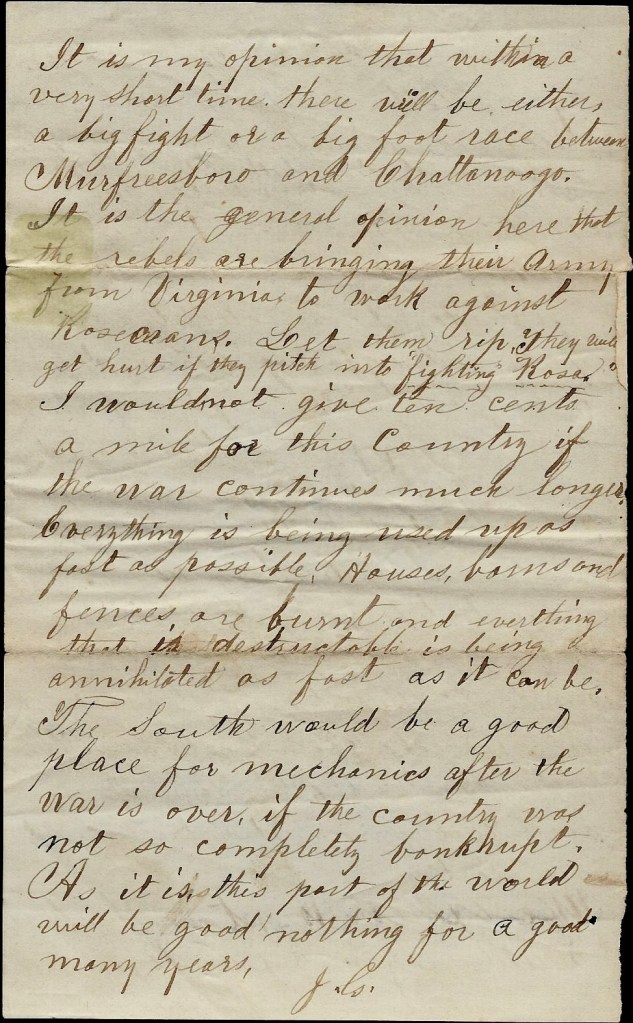 It is my opinion that within a
very short time there will be either
a big fight or a big foot race between
Murfreesboro and Chattanoogo.
It is the general opinion here that
the rebels are bringing their Army
from Virginia to work against
Rosecrans. Let them rip, They will
get hurt if they pitch into "fighting" Rosa.
I would not give ten cents
a mile for this Country if
the war continues much longer.
Everything is being used up as
fast as possible. Houses, barns and
fences are burnt and everthing
that is destructable is being
annihilated as fast as it can be.
The South would be a good
place for mechanics after the
war is over, if the country was
not so completely bankrupt.
As it is, this part of the world
will be good nothing for a good
many years,